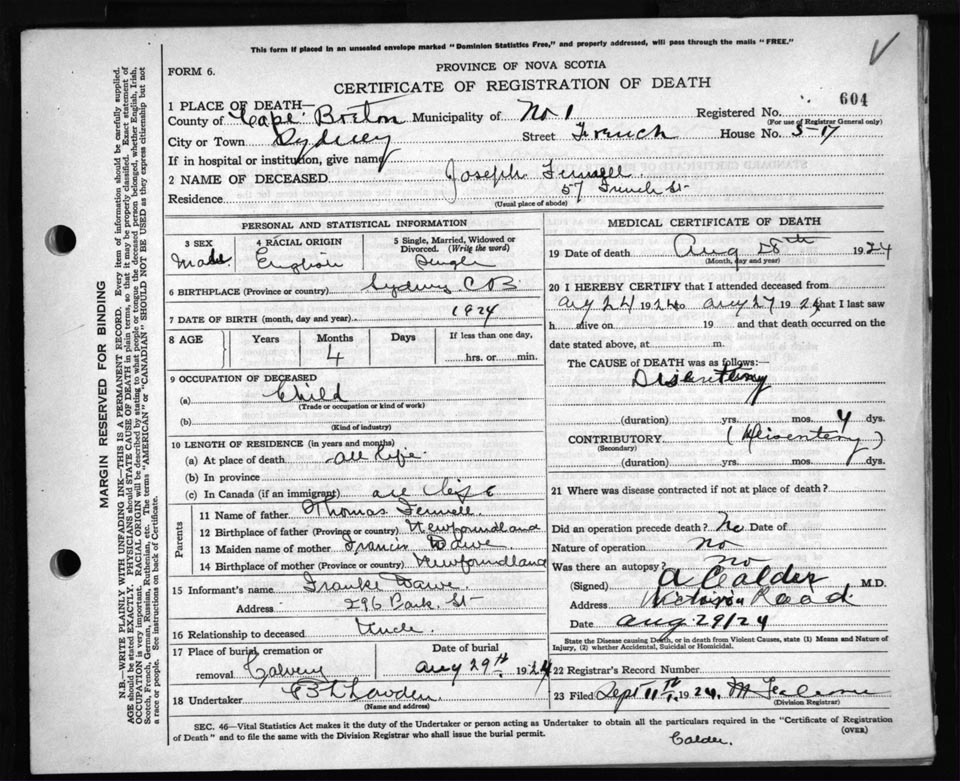 This form if placed in an unsealed envelope marked "Dominion Statistics Free," and property addressed, will pass through the mails "FREE."
FORM 6.
PROVINCE OF NOVA SCOTIA
CERTIFICATE OF REGISTRATION OF DEATH
604
1 PLACE OF DEATH—
County of Cape Breton Municipality of No 1 Registered No.
(For use of Registrar General only)
City or Town Sydney Street French House No. 5-17
If in hospital or institution, give name
2 NAME OF DECEASED Joseph
Residence 57 French St
(Usual place of abode)
PERSONAL AND STATISTICAL INFORMATION
3 SEX 4 RACIAL ORIGIN 5 Single, Married, Widowed or Divorced. (Write the word)
Male English Single
6 BIRTHPLACE (Province or country) Sydney C B
7 DATE OF BIRTH (month, day and year) 1924
8 AGE Years Months Days If less than one day,
4 hrs. or min.
9 OCCUPATION OF DECEASED
(a) Child
(Trade or occupation or kind of work)
(b)
(Kind of industry)
10 LENGTH OF RESIDENCE (in years and months)
(a) At place of death all life
(b) In province
(c) In Canada (if an immigrant) all life
Parents
11 Name of father Thomas
12 Birthplace of father (Province or country) Newfoundland
13 Maiden name of mother Francis Dawe
14 Birthplace of mother (Province or country) Newfoundland
15 Informant's name Frank Dawe
Address 296 Park St
16 Relationship to deceased Uncle
17 Place of burial, cremation or removal Date of burial
Calvery Aug 29th 1924
18 Undertaker
(Name and address)
MEDICAL CERTIFICATE OF DEATH
19 Date of death Aug 28th 1924
(Month, day and year)
20 I HEREBY CERTIFY that I attended deceased from
Aug 24 1924 to Aug 27 1924 that I last saw
h alive on 19 and that death occurred on
date stated above, at m.
The CAUSE OF DEATH was as follows:—
Disentery
(duration) yrs. mos. 4 dys.
CONTRIBUTORY (Disentery)
(Secondary)
(duration) yrs. mos. dys.
21 Where was disease contracted if not at place of death?
Did an operation precede death? No Date of
Nature of operation no
Was there an autopsy? no
(Signed) A Calder, M.D.
Address Victoria Road
Date Aug 29/24
State the Disease causing Death, or in death from Violent Causes, state (1) Means and Nature of Injury, (2) whether Accidental, Suicidal or Homicidal.
22 Registrar's Record Number
23 Filed Sept 11th 1924
(Division Registrar)
SEC. 46—Vital Statistics Act makes it the duty of the Undertaker or person acting as Undertaker to obtain all the particulars required in the "Certificate of Registration of Death" and to file the same with the Division Registrar who shall issue the burial permit.
(OVER)
Calder.
MARGIN RESERVED FOR BINDING
N.B.—WRITE PLAINLY WITH UNFADING INK—THIS IS A PERMANENT RECORD. Every item of information should be carefully supplied.
AGE should be stated EXACTLY. PHYSICIANS should STATE CAUSE OF DEATH in plain terms, so that it may be properly classified. Exact statement of
OCCUPATION is very important. RACIAL ORIGIN will be described by stating to what people or tongue the deceased person belonged, whether English, Irish,
Scotch, French, German, Russian, Ruthenian, etc. The terms "AMERICAN" or "CANADIAN" SHOULD NOT BE USED as they express citizenship but not
a race or people. See instructions on back of Certificate.